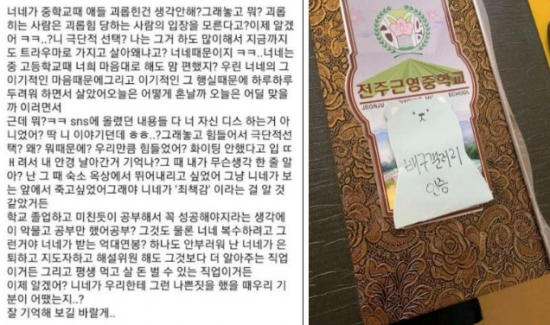 너네가 중학교때 애들 괴롭힌건 생각안해?그래놓고 뭐? 괴롭
히는 사람은 괴롭힘 당하는 사람의 입장을 모른다고?이제 알겠
어 ㅋㅋ..?니 극단적 선택? 나는 그거 하도 많이해서 지금까지
도 트라우마로 가지고 살아왜나고? 너네때문이지 ㅋㅋ너네는
중 고등학교때 너희 마음대로 해도 맘 편했지? 우린 너네의 그
이기적인 마음때문에그리고 이기적인 그 행실때문에 하루하루
두려워 하면서 살았어오늘은 어떻게 혼날까 오늘은 어딜 맞을
까 이러면서
근데 뭐?ㅋㅋ sns에 올렸던 내용들 다 너 자신 디스 하는거 아
니었어? 딱 니 이야기던데 ㅎㅎ..?그래놓고 힘들어서 극단적선
택? 왜? 뭐때문에? 우리만큼 힘들었어? 화이팅 안했다고 입 ㄸ
ㅐ려서 내 안경 날아간거 기억나? 그 때 내가 무슨생각 한 줄 알
아? 난 그 때 숙소 옥상에서 뛰어내리고 싶었어 그냥 니네가 보
는 앞에서 죽고싶었어그래야 니네가 '죄책감' 이라는 걸 알 것
같았거든
학교 졸업하고 미친듯이 공부해서 꼭 성공해야지라는 생각에
이 악물고 공부만 했어공부? 그것도 물론 너네 복수하려고 그
런거야 너네가 받는 억대연봉? 하나도 안부러워 난 너네가 은
퇴하고 지도자하고 해설위원 해도 그것보다 더 알아주는 직업
이거든 그리고 평생 먹고 살 돈 벌 수 있는 직업이거든
이제 알겠어? 니네가 우리한테 그런 나쁜짓을 했을 때우리 기
분이 어땠는지..?
잘 기억해 보길 바랄게..
전주근영중학교
JEONJU SCHOOL
배구갤러리
인증